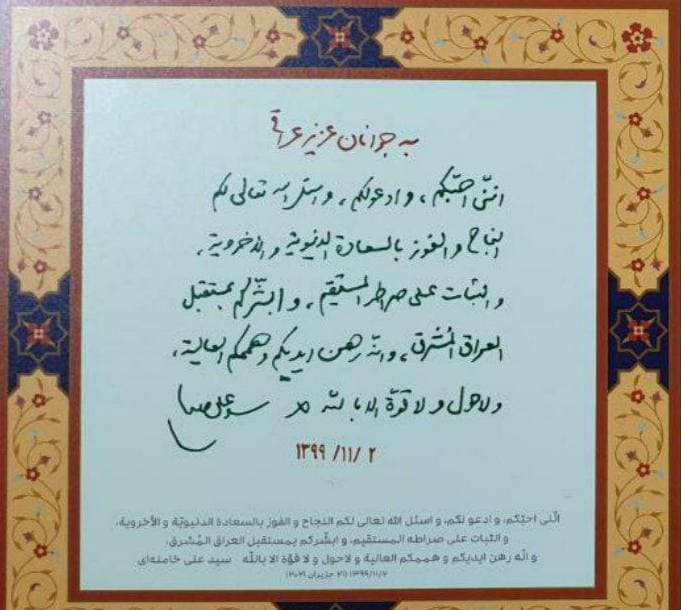 به جوانان عزیز عراق
انّنی احبّکم، و ادعولکم، و اسئل الله تعالی لکم
النجاح و الفوز بالسعادة الدنیویة و الأخرویة،
و الثبات علی صراطه المستقیم، و ابشّرکم بمستقبل
العراق المُشرق، و انّه رهن ایدیکم و هممکم العالیة،
ولاحول و لا قوّة الا بالله
۱۳۹۹/۱۱/۲
انّنی احبّکم، و ادعو لکم، و اسئل الله تعالی لکم النجاح و الفوز بالسعادة الدنیویّة و الأخرویة،
و الثبات علی صراطه المستقیم، و ابشّرکم بمستقبل العراق المُشرق،
و انّه رهن ایدیکم و هممکم العالیة و لاحول و لا قوّة الا باللّه سید علی خامنه‌ای
۱۳۹۹/۱۱/۲ (۲۱ حزیران ۲۰۲۱)